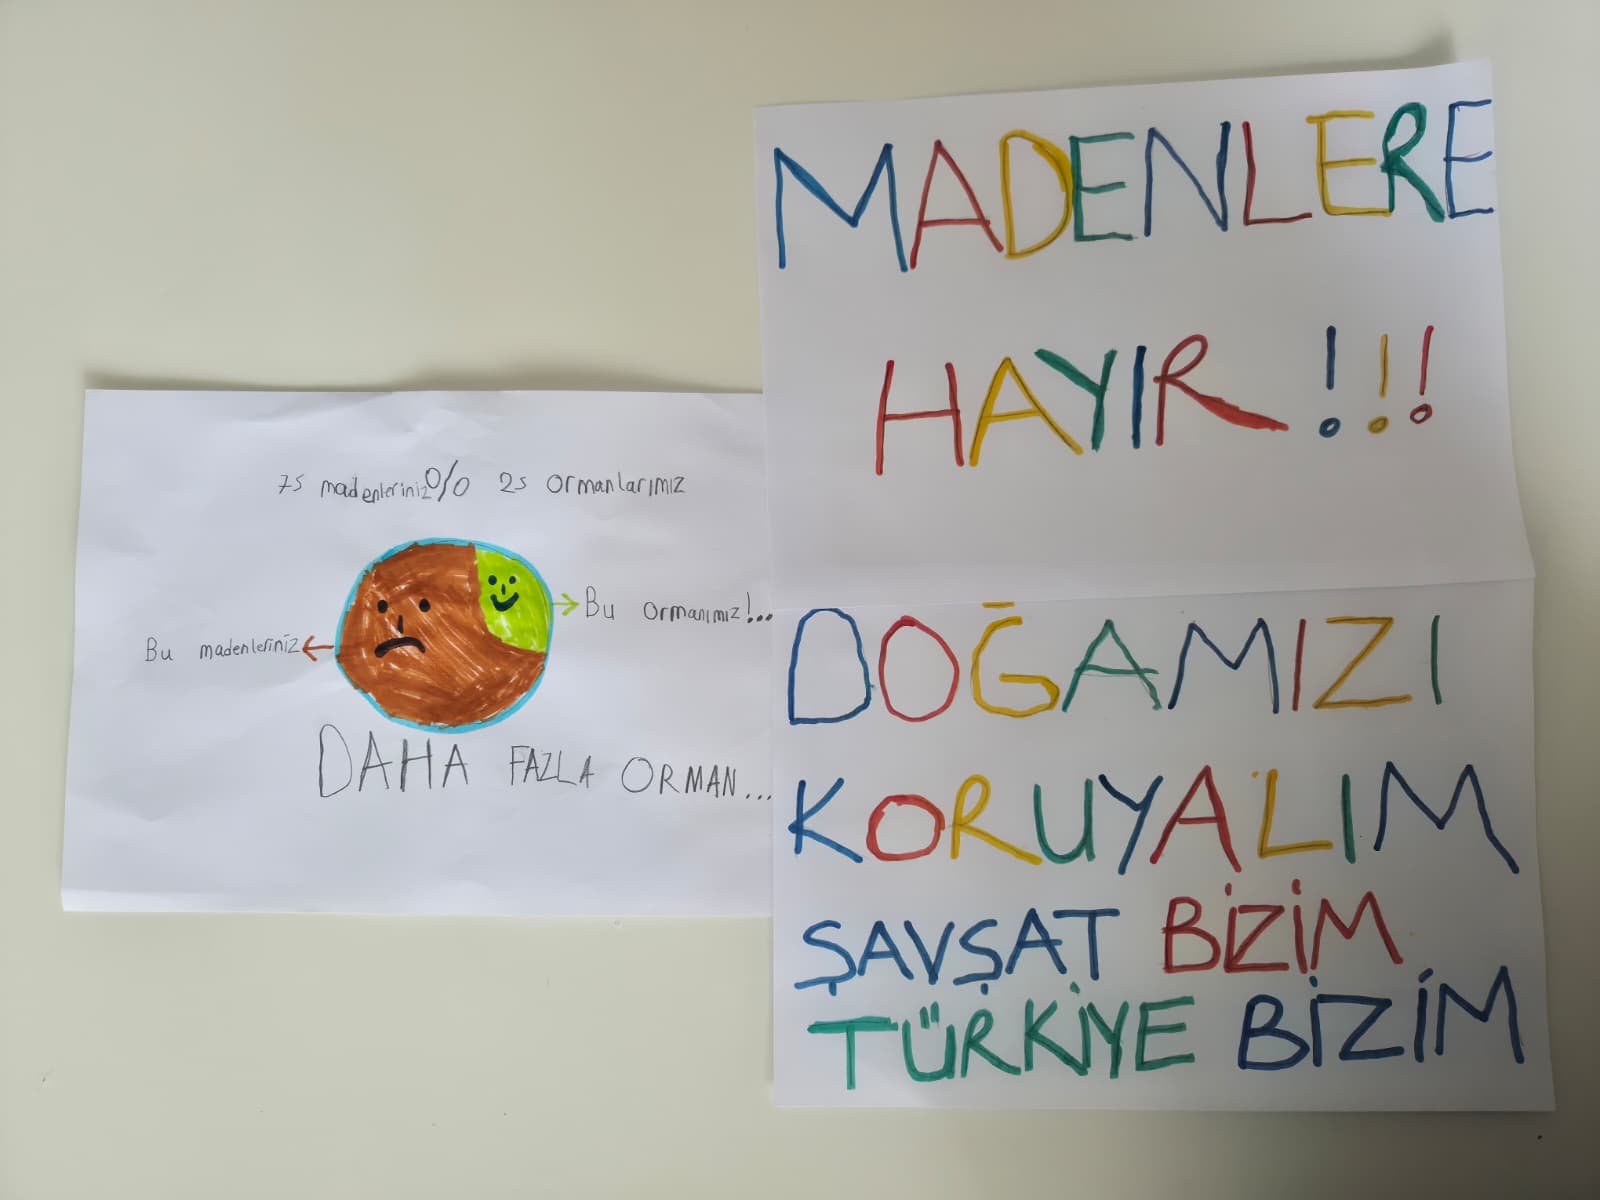 75 madenleriniz % 25 ormanlarımız
Bu ormanımız!...
Bu madenleriniz
DAHA FAZLA ORMAN...
MADENLERE
HAYIR !!!
DOĞAMIZI
KORUYALIM
ŞAVŞAT BİZİM
TÜRKİYE BİZİM